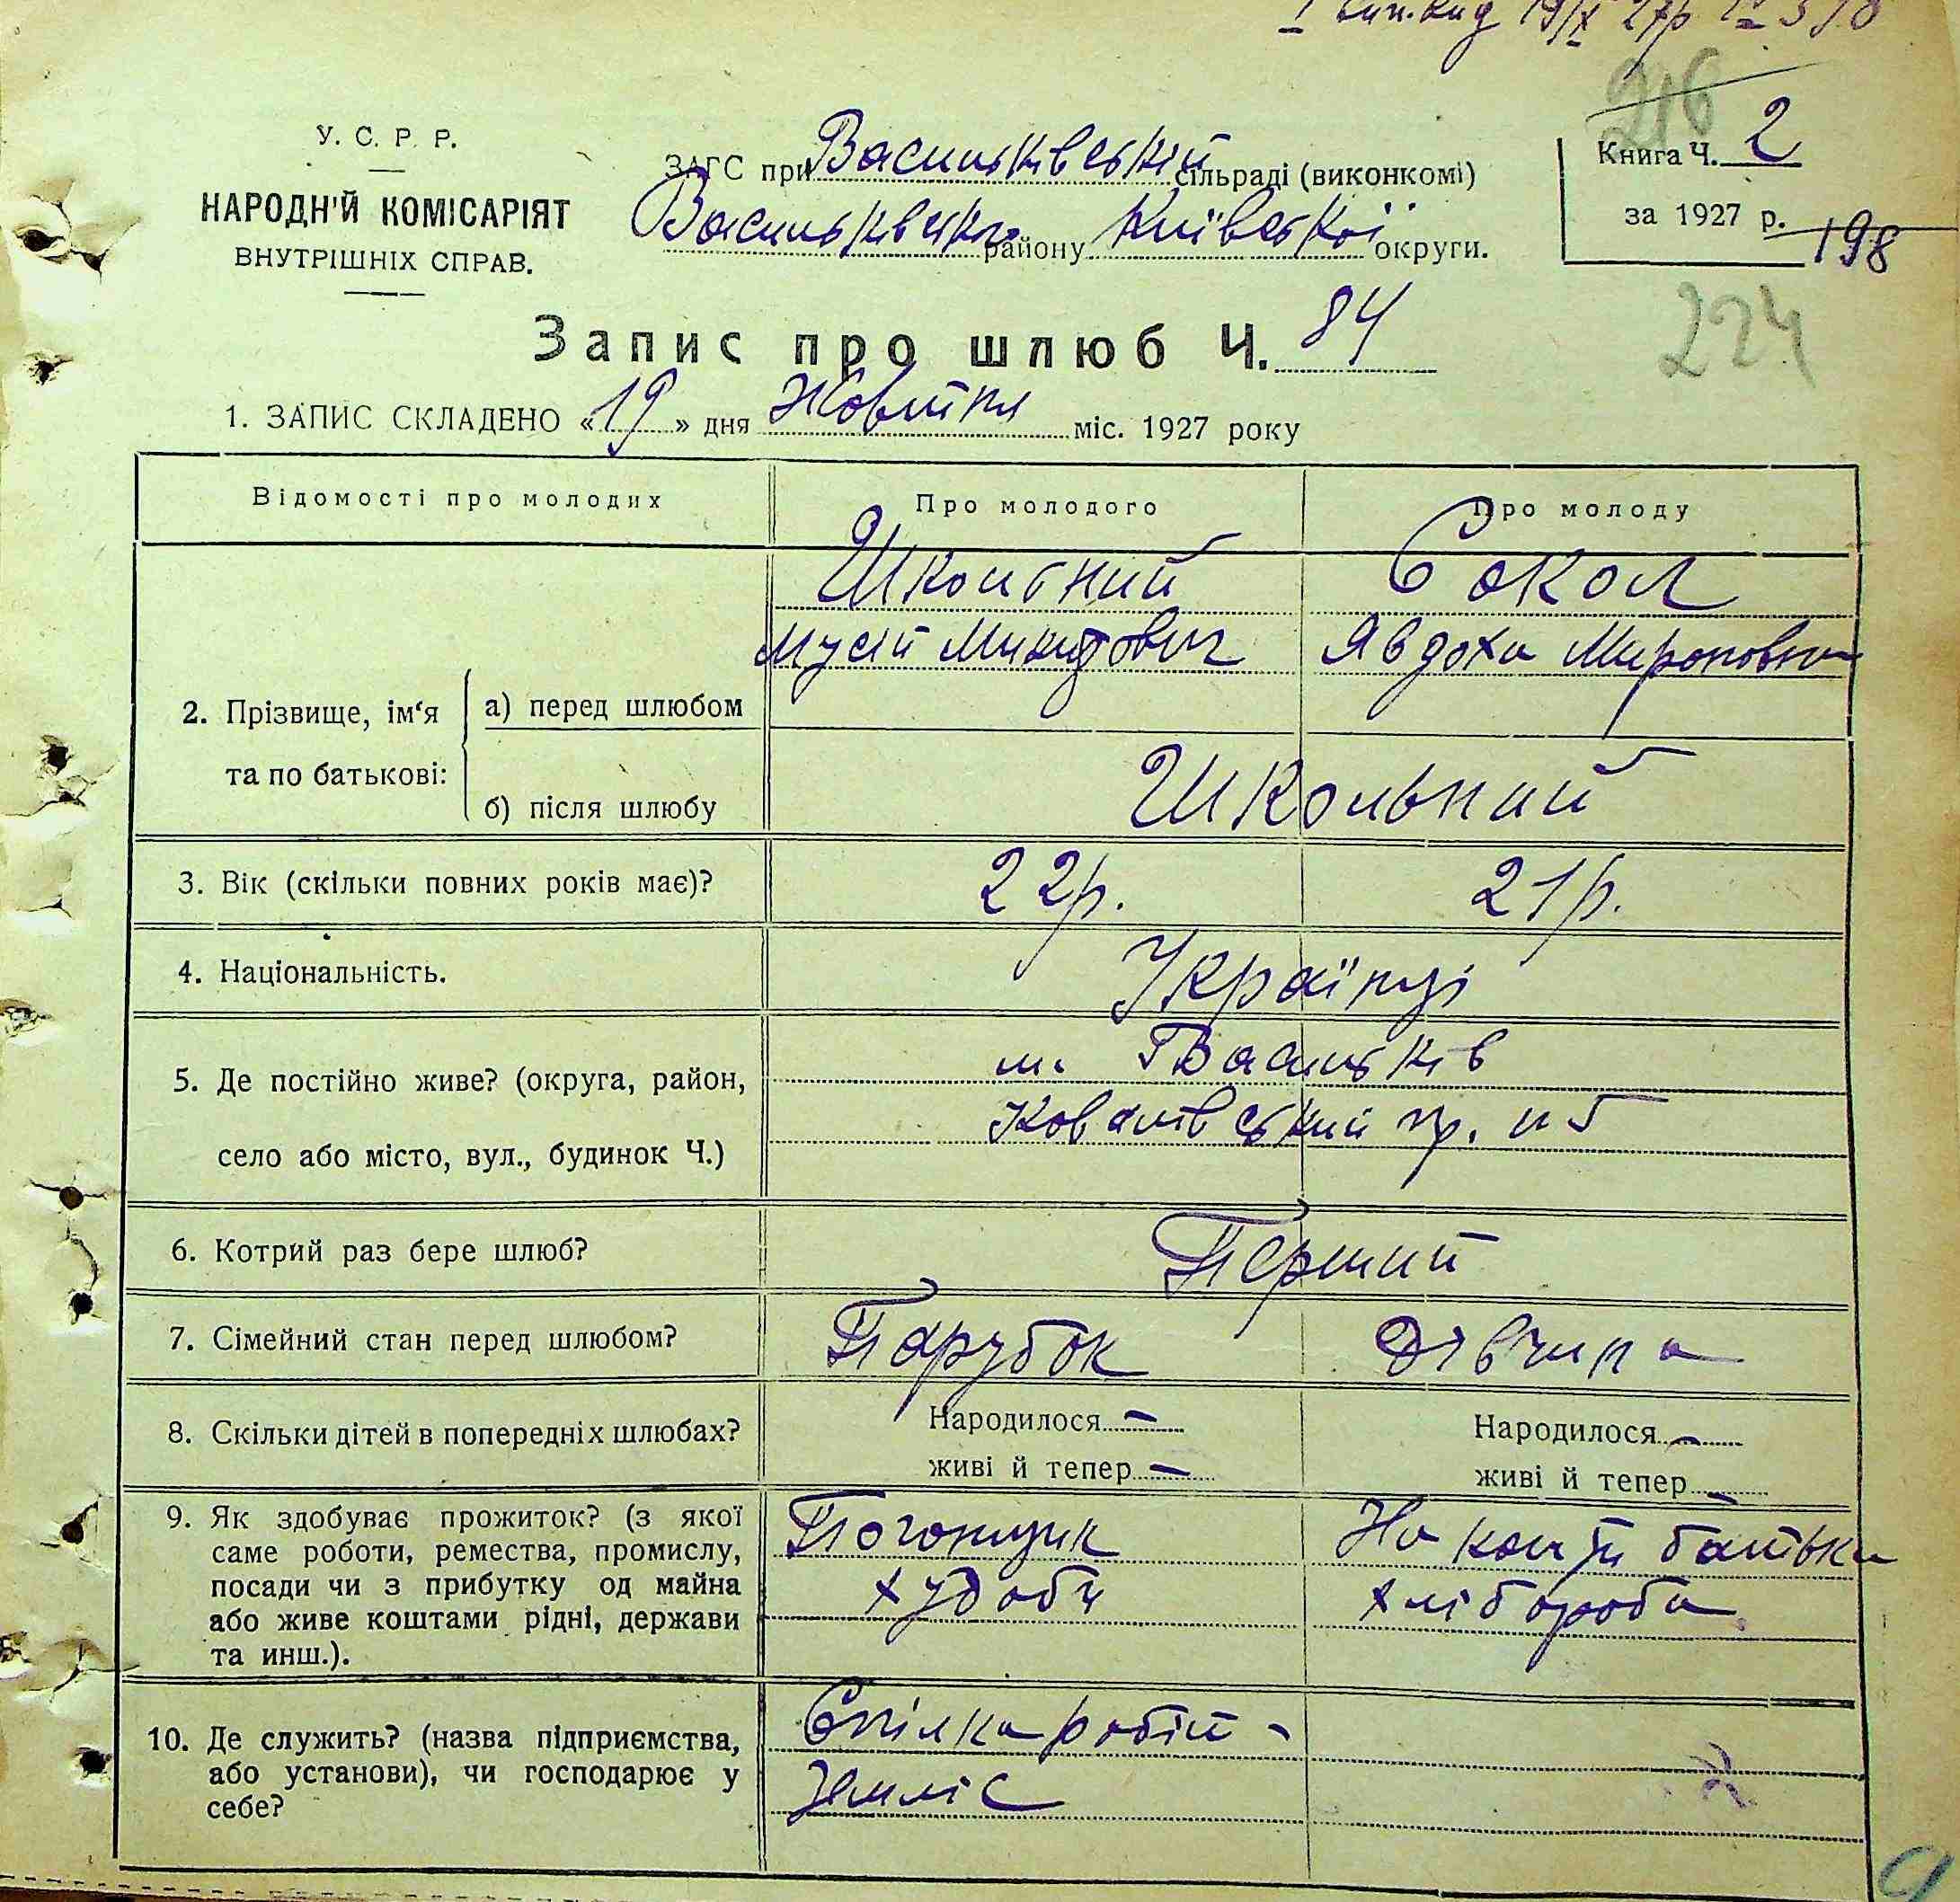 I вип. вид 19/X 27р.
216
У. С. Р. Р.
НАРОДН'Й КОМІСАРІЯТ
ВНУТРІШНІХ СПРАВ.
ЗАГС при Васильківській сільраді (виконкомі)
Васильківського району Київської округи.
Книга Ч. 2
за 1927 р.
198
224
Запис про шлюб Ч. 84
1. ЗАПИС СКЛАДЕНО «19» дня Жовтня міс. 1927 року
Відомості про молодих
Про молодого
Про молоду
2. Прізвище, ім‘я та по батькові:
а) перед шлюбом
Школьний
Мусій Микитович
Сокол
Явдоха Мироновна
б) після шлюбу
Школьний
3. Вік (скільки повних років має)?
22р.
21р.
4. Національність.
Українці
5. Де постійно живе? (округа, район,
село або місто, вул., будинок Ч.)
м. Васильків
Ковалівський пр. н 5
6. Котрий раз бере шлюб?
Перший
7. Сімейний стан перед шлюбом?
Парубок
Дівчина
8. Скільки дітей в попередніх шлюбах?
Народилося –
живі й тепер –
Народилося –
живі й тепер –
9. Як здобуває прожиток? (з якої
саме роботи, ремества, промислу,
посади чи з прибутку од майна
або живе коштами рідні, держави
та инш.).
Погонщик
худоби
На кошти батька
хлібороба
10. Де служить? (назва підприємства,
або установи), чи господарює у
себе?
Спілка робіт-
земліс